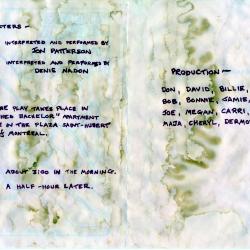 CTERS —
INTERPRETED AND PERFORMED BY
JON PATTERSON
INTERPRETED AND PERFORMED BY
DENIS NADON
THE PLAY TAKES PLACE IN
HED BACHELOR APARTMENT
E IN THE PLAZA SAINT-HUBERT
MONTREAL.
ABOUT 3:00 IN THE MORNING.
A HALF-HOUR LATER.
PRODUCTION —
DON, DAVID, BILLIE,
BOB, BONNIE, JAMIE,
JOE, MEGAN, CARRI,
MAJA, CHERYL, DERMO